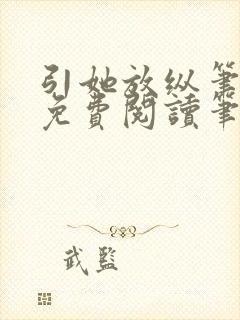 引她放纵笔
免費閱讀筆
武監